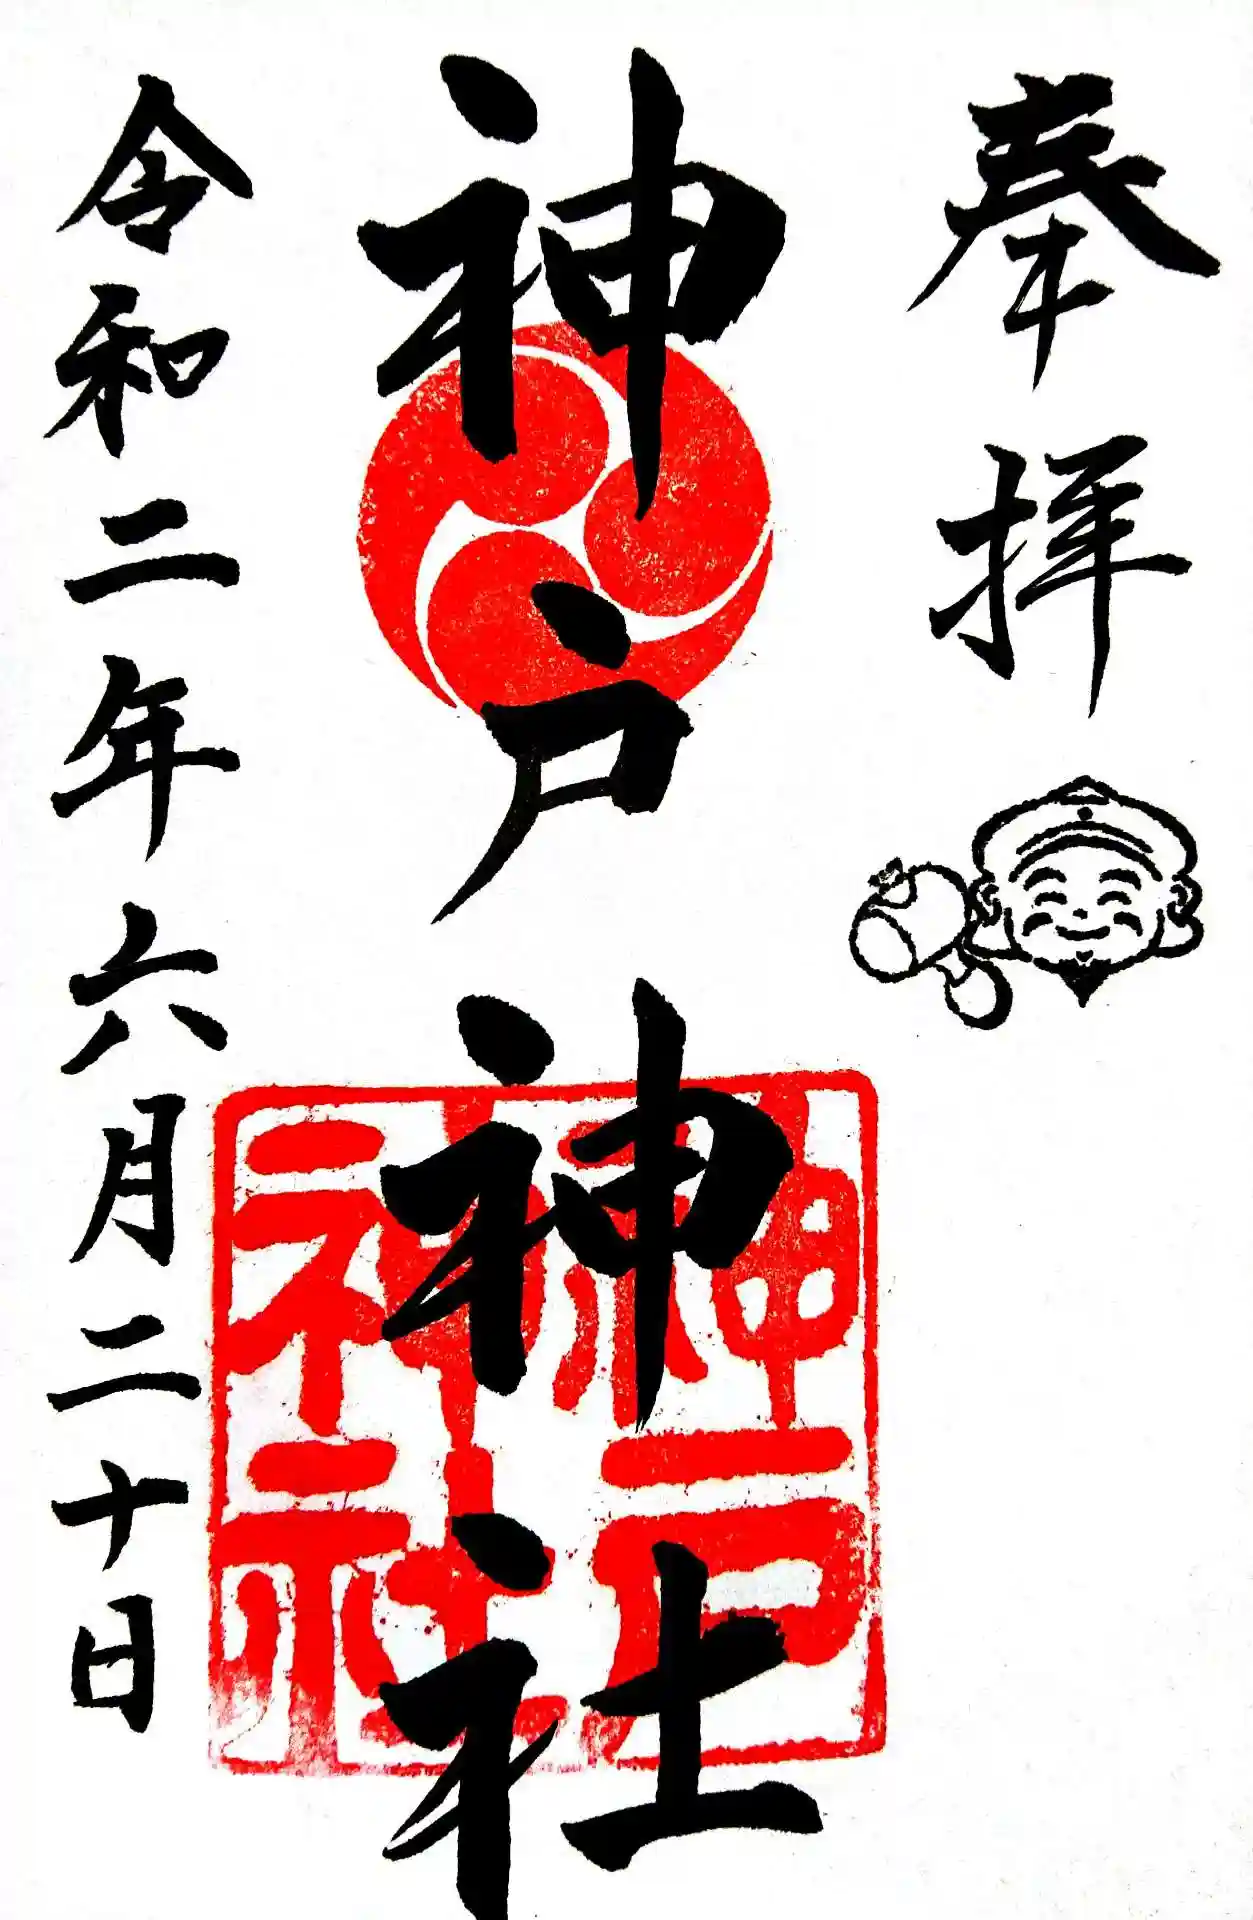 奉拝
神戸神社
神戸神社
令和二年六月二十日